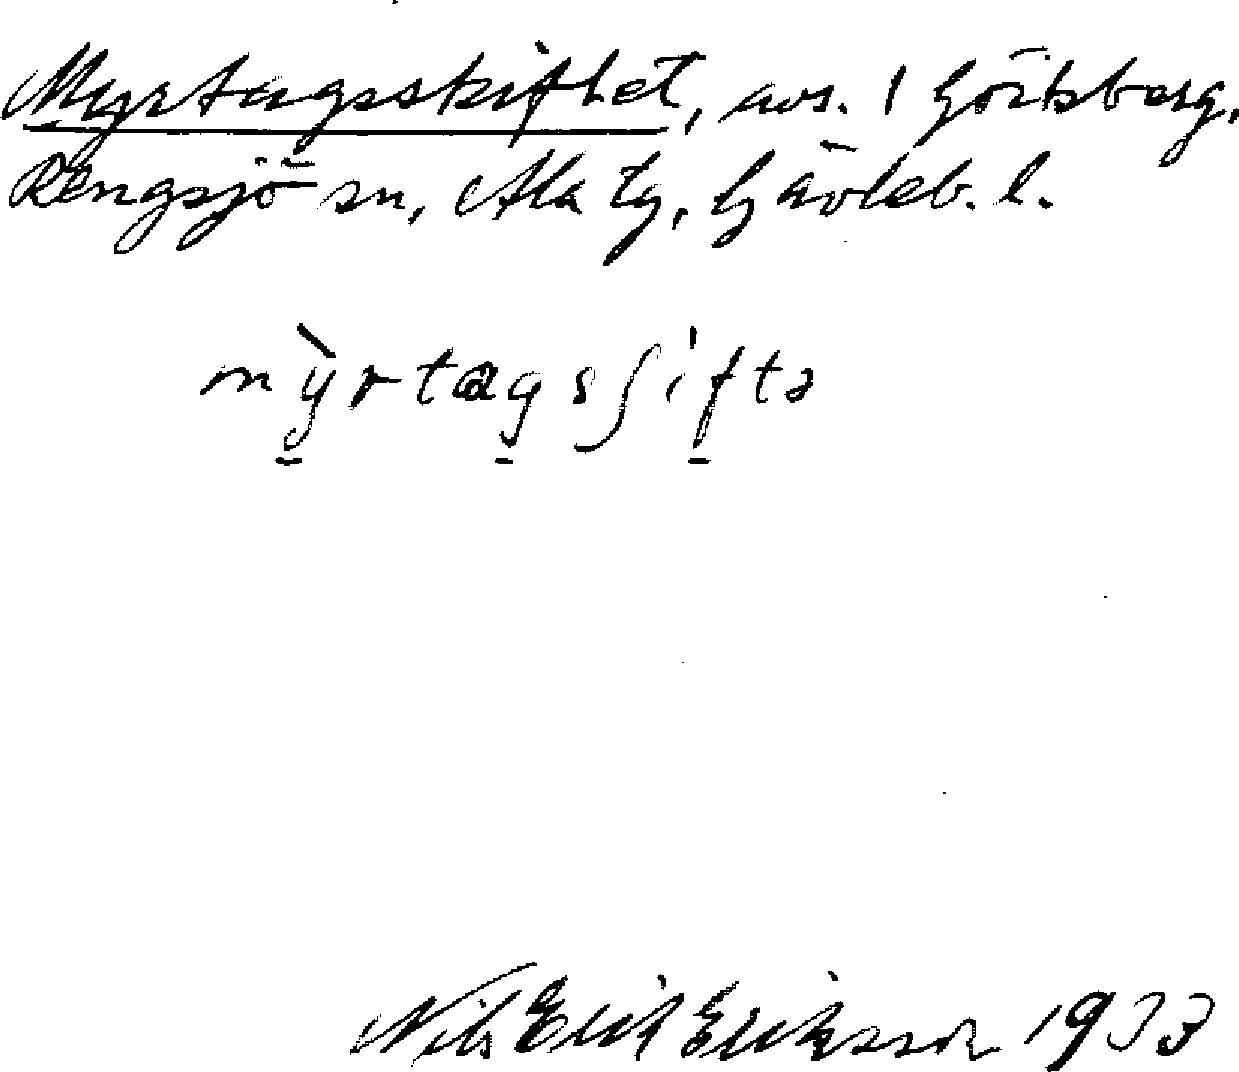 Myrtagsskiftet, avs. 1 Görtsberg,
Rengsjö sn, Ala tg, Gävleb. l.
mỳrtagsʃìftə
Nils Erik Eriksson 1933